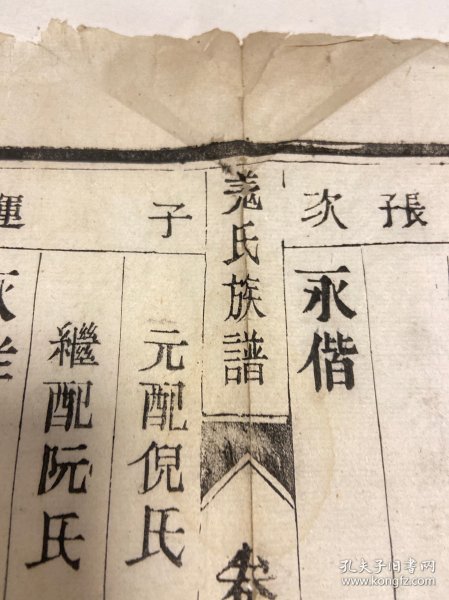 張
次
永偕
氏族譜
卷
子
元配倪氏
繼配阮氏
運
孔夫子旧书网
www.kongfz.com